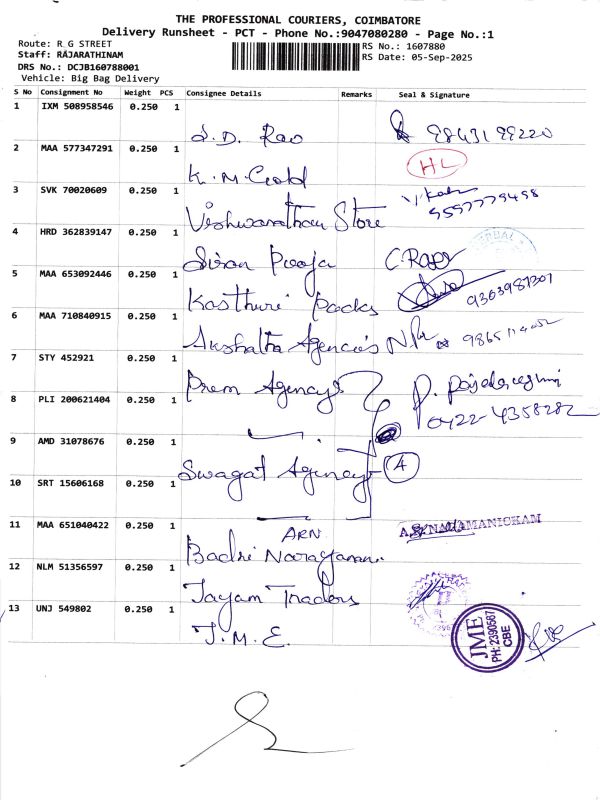 THE PROFESSIONAL COURIERS, COIMBATORE
Delivery Runsheet - PCT - Phone No.:9047080280 - Page No.:1
Route: R G STREET
Staff: RAJARATHINAM
DRS No.: DCJB160788001
Vehicle: Big Bag Delivery
RS No.: 1607880
RS Date: 05-Sep-2025
S No Consignment No Weight PCS Consignee Details Remarks Seal & Signature
1 IXM 508958546 0.250 1 S.D. Rao
2 MAA 577347291 0.250 1 K.M. Gold HL
3 SVK 70020609 0.250 1 Vishwanathan Store
4 HRD 362839147 0.250 1 Siran Pooja
5 MAA 653092446 0.250 1 Kasthuri packs 9363987307
6 MAA 710840915 0.250 1 Akshaltha Agencies
7 STY 452921 0.250 1 Prem Agencys
8 PLI 200621404 0.250 1 0422-4358282
9 AMD 31078676 0.250 1 Swagat Agency 4
10 SRT 15606168 0.250 1
11 MAA 651040422 0.250 1 ARN Badri Narayanan.
12 NLM 51356597 0.250 1 Jayam Traders
13 UNJ 549802 0.250 1 J.M.E.
JME
PH: 2390587
CBE